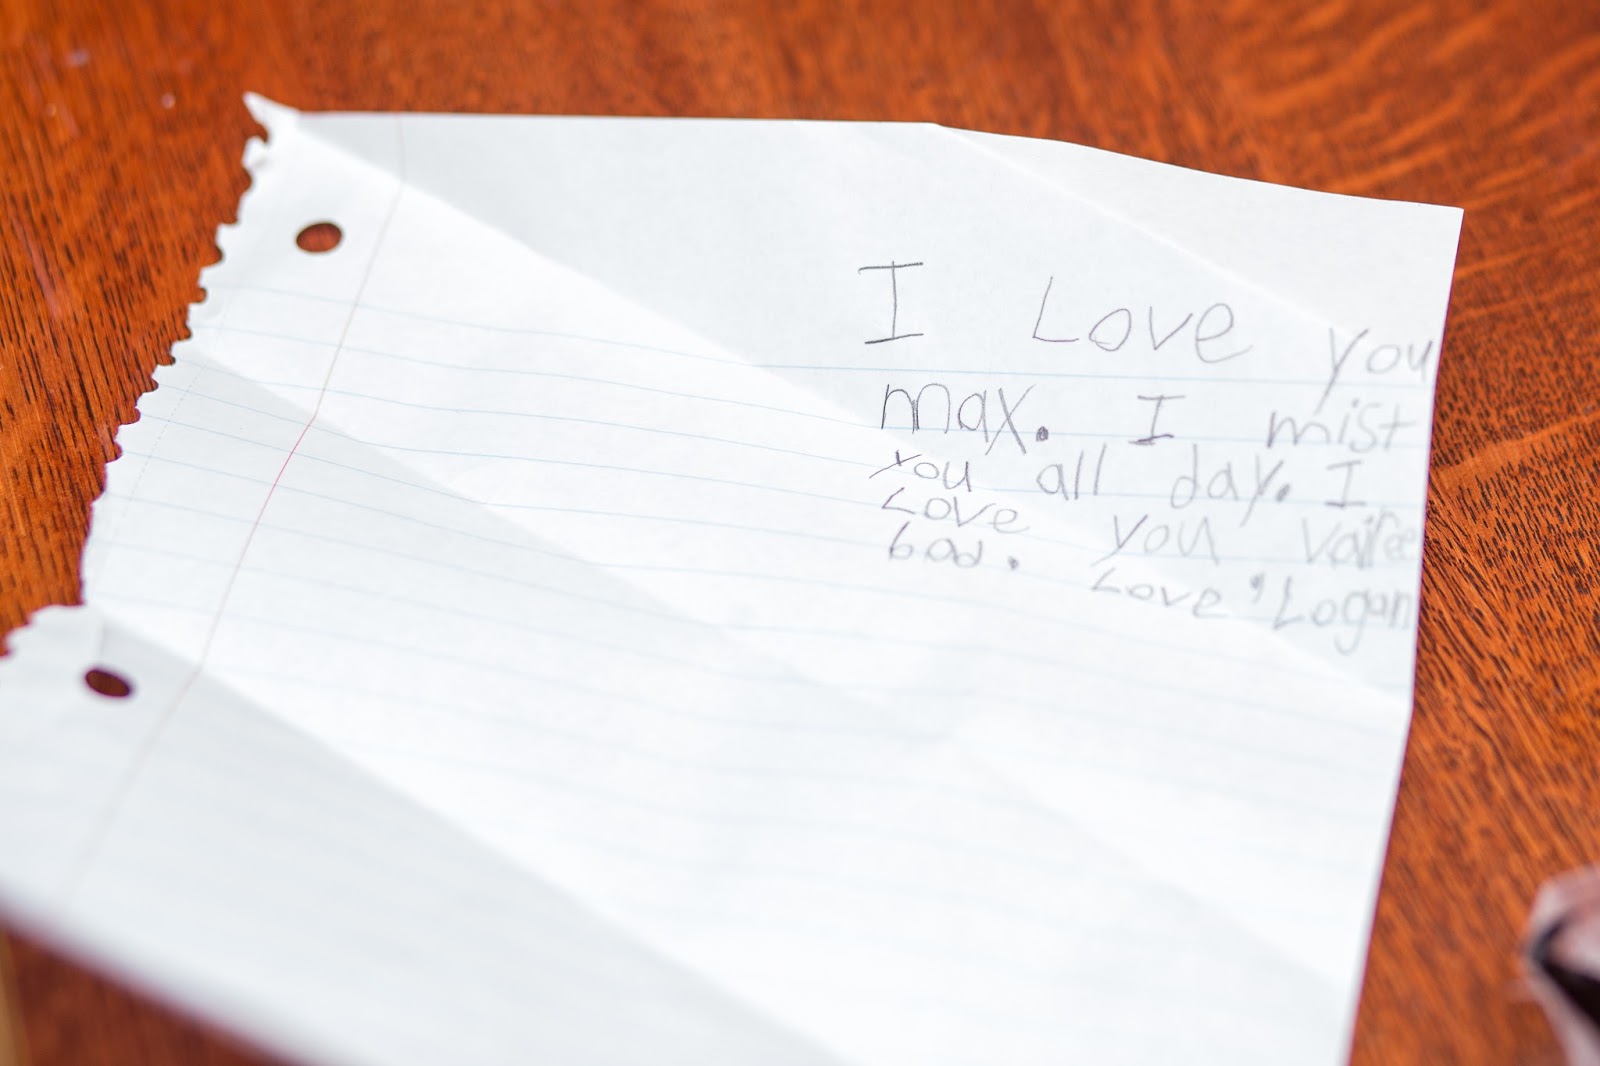 I Love you
max. I mist
you all day. I
Love you vairee
bad. Love, Logan